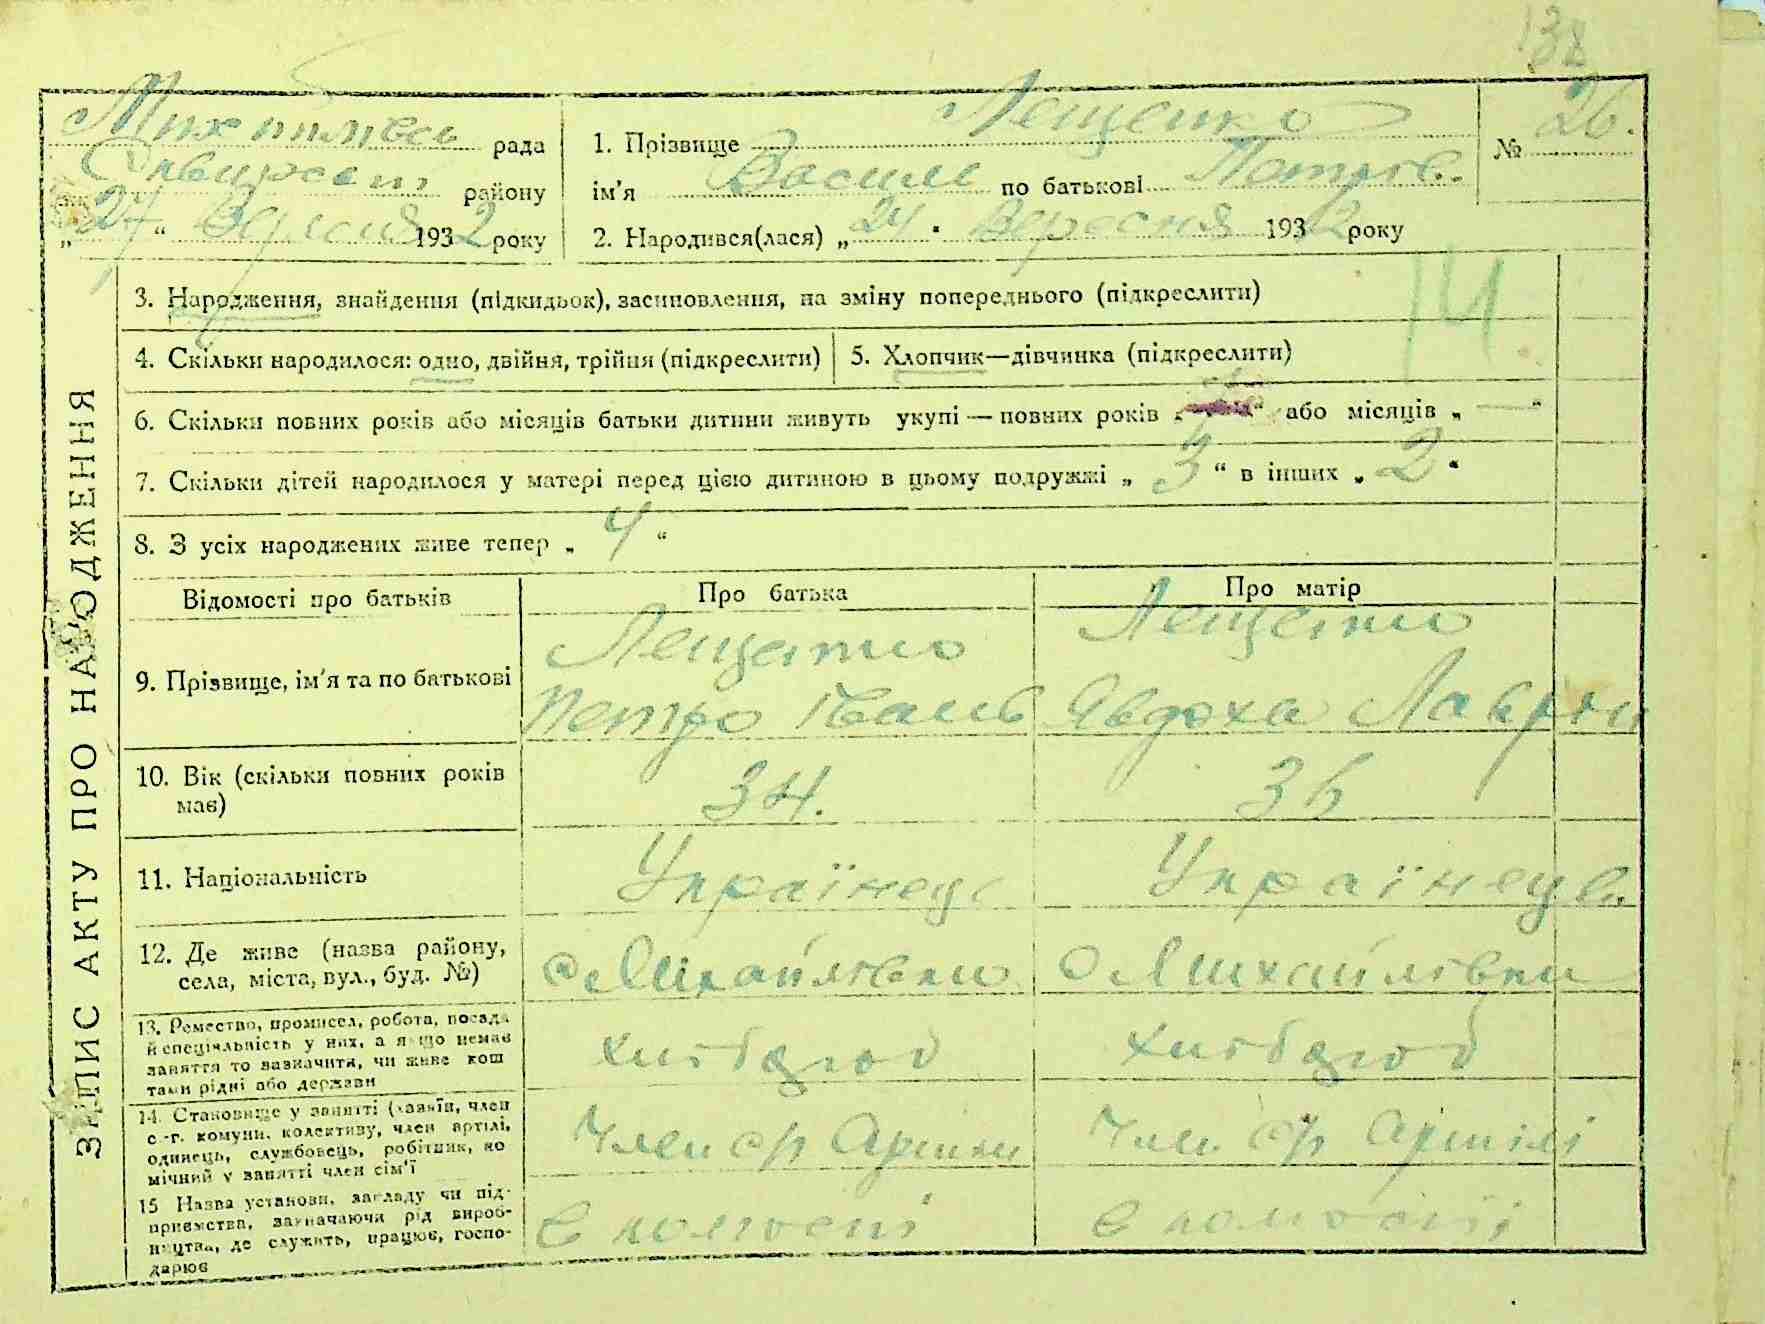 138
рада
Лещенко
1. Прізвище
№ 26.
району
ім'я Василь по батькові Петров.
„27“ Вересня 1932 року
2. Народився(лася) „24“ Вересня 1932 року
14
3. Народження, знайдення (підкидьок), засиновлення, на зміну попереднього (підкреслити)
4. Скільки народилося: одно, двійня, трійня (підкреслити)
5. Хлопчик—дівчинка (підкреслити)
6. Скільки повних років або місяців батьки дитини живуть укупі — повних років „ “ або місяців „ — “
7. Скільки дітей народилося у матері перед цією дитиною в цьому подружжі „ 3 “ в інших „ 2 “
8. З усіх народжених живе тепер „ 4 “
ЗАПИС АКТУ ПРО НАРОДЖЕННЯ
Відомості про батьків
Про батька
Про матір
9. Прізвище, ім'я та по батькові
Лещенко
Петро Іванов
Лещенко
Явдоха Лаврін
10. Вік (скільки повних років
має)
34.
36
11. Національність
Українець
Українець
12. Де живе (назва району,
села, міста, вул., буд. №)
с Михайлівки
с Михайлівки
13. Ремество, промисел, робота, посада
й спеціяльність у них, а якщо немає
заняття то зазначити, чи живе кош
тами рідні або держави
Хлібороб
Хлібороб
14. Становище у занятті (хазяїн, член
с.-г. комуни, колективу, член артілі,
одинець, службовець, робітник, по
мічний у занятті член сім'ї
Член с/г Артілі
Член с/г Артілі
15 Назва установи, закладу чи під-
приємства, зазначаючи рід вироб-
ництва, де служить, працює, госпо-
дарює
В колгоспі
В колгоспі